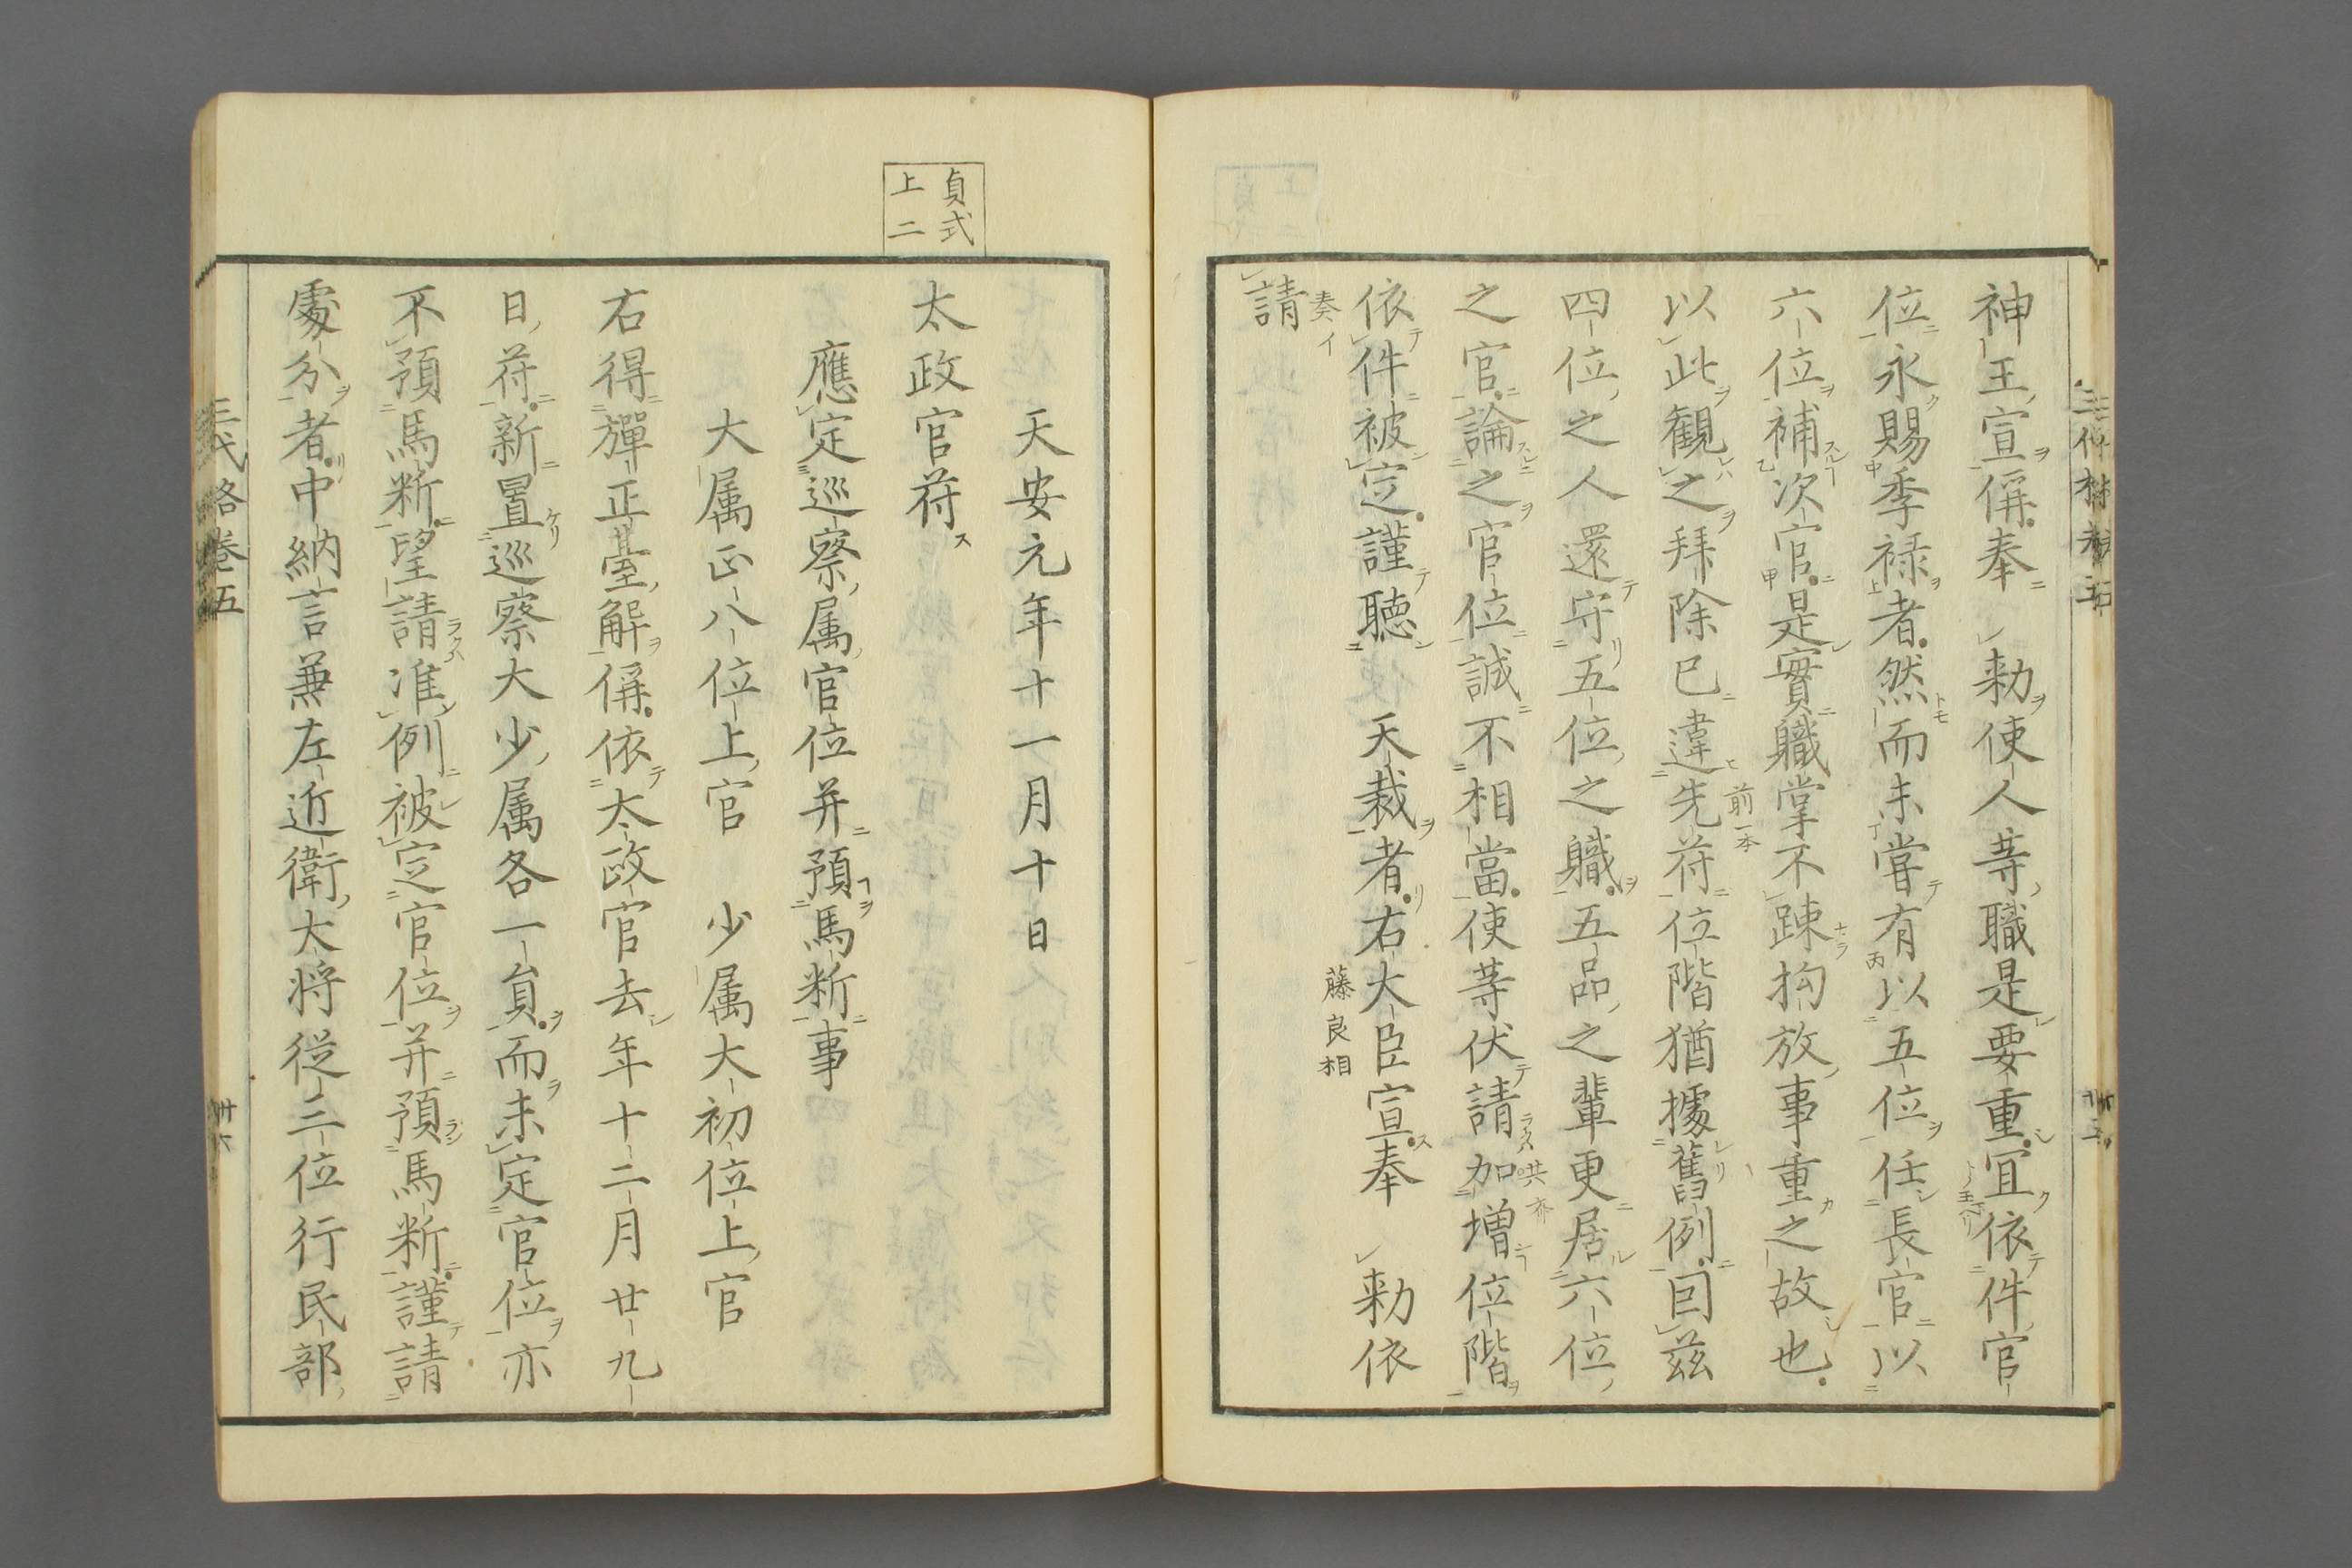 神王宣偁奉　勅使人等職是要重冝依件官
位永賜季禄者然而未嘗有以五位任長官以
六位補次官是實職掌不踈拘放事重之故也
以此観之拜除已違先符位階猶據舊例因茲
前一本
四位之人還守五位之職五品之輩更居六位
之官論之官位誠不相當使等伏請加増位階
依件被定謹聴　天裁者右大臣宣奉　勅依
藤良相
請
奏イ
貞式
上二
天安元年十一月十日
太政官符
應定巡察属官位并預馬断事
大属正八位上官　少属大初位上官
右得弾正臺解偁依太政官去年十二月廿九
日符新置巡察大少属各一員而未定官位亦
不預馬断望請准例被定官位并預馬断謹請
處分者中納言兼左近衛大将従三位行民部
三代格巻五
卅六